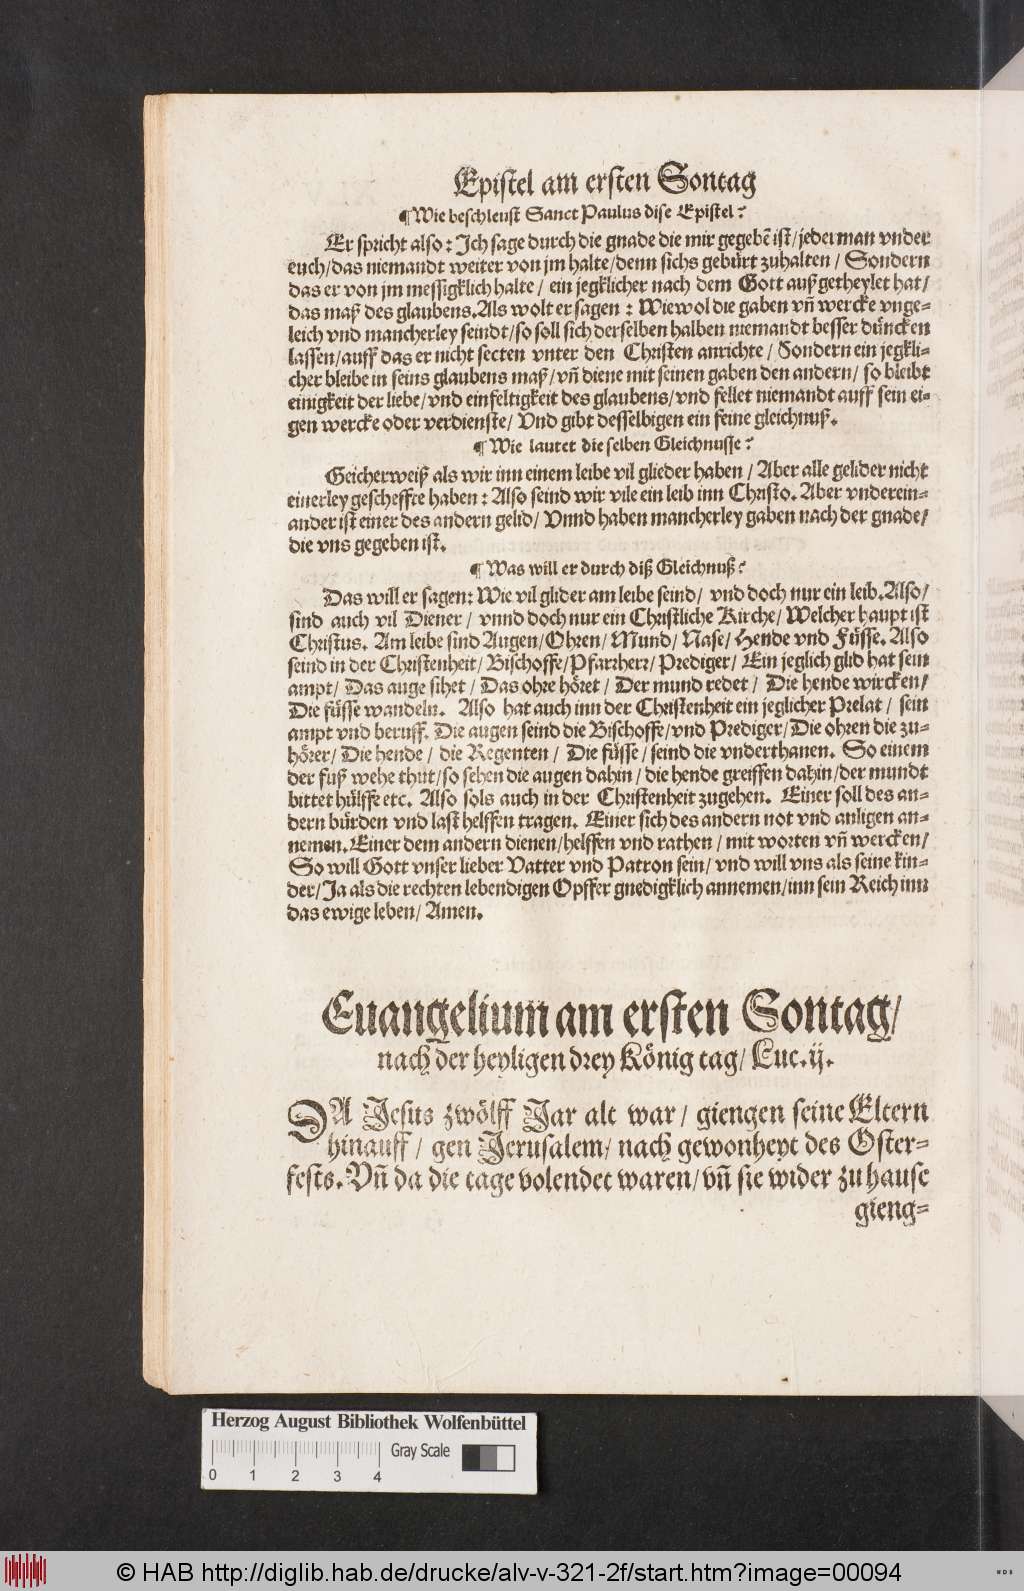 Epistel am ersten Sontag
¶ Wie beschleust Sanct Paulus dise Epistel?
Er spricht also: Ich sage durch die gnade die mir gegebẽ ist/ jederman vnder
euch/ das niemandt weiter von jm halte/ denn sichs gebürt zuhalten/ Sondern
das er von jm messigklich halte/ ein jegklicher nach dem Gott außgetheylet hat/
das maß des glaubens. Als wolt er sagen: Wiewol die gaben vñ wercke vnge-
leich vnd mancherley seindt/ so soll sich derselben halben niemandt besser düncken
lassen/ auff das er nicht secten vnter den Christen anrichte/ Sondern ein jegkli-
cher bleibe in seins glaubens maß/ vñ diene mit seinen gaben den andern/ so bleibt
einigkeit der liebe/ vnd einfeltigkeit des glaubens/ vnd fellet niemandt auff sein ei-
gen wercke oder verdienste/ Vnd gibt desselbigen ein feine gleichnuß.
¶ Wie lautet die selben Gleichnusse?
Geicherweiß als wir inn einem leibe vil glieder haben/ Aber alle gelider nicht
einerley gescheffte haben: Also seind wir vile ein leib inn Christo. Aber vnderein-
ander ist einer des andern gelid/ Vnnd haben mancherley gaben nach der gnade/
die vns gegeben ist.
¶ Was will er durch diß Gleichnuß?
Das will er sagen: Wie vil glider am leibe seind/ vnd doch nur ein leib. Also/
sind auch vil Diener/ vnnd doch nur ein Christliche Kirche/ Welcher haupt ist
Christus. Am leibe sind Augen/ Ohren/ Mund/ Nase/ Hende vnd Füsse. Also
seind in der Christenheit/ Bischoffe/ Pfarrherr/ Prediger/ Ein jeglich glid hat sein
ampt/ Das auge sihet/ Das ohre höret/ Der mund redet/ Die hende wircken/
Die füsse wandeln. Also hat auch inn der Christenheit ein jeglicher Prelat/ sein
ampt vnd beruff. Die augen seind die Bischoffe/ vnd Prediger/ Die ohren die zu-
hörer/ Die hende/ die Regenten/ Die füsse/ seind die vnderthanen. So einem
der fuß wehe thut/ so sehen die augen dahin/ die hende greiffen dahin/ der mundt
bittet hülffe etc. Also sols auch in der Christenheit zugehen. Einer soll des an-
dern bürden vnd last helffen tragen. Einer sich des andern not vnd anligen an-
nemen. Einer dem andern dienen/ helffen vnd rathen/ mit worten vñ wercken/
So will Gott vnser lieber Vatter vnd Patron sein/ vnd will vns als seine kin-
der/ Ja als die rechten lebendigen Opffer gnedigklich annemen/ inn sein Reich inn
das ewige leben/ Amen.
Euangelium am ersten Sontag/
nach der heyligen drey König tag/ Luc. ij.
DA Jesus zwölff Jar alt war/ giengen seine Eltern
hinauff/ gen Jerusalem/ nach gewonheyt des Oster-
fests. Vñ da die tage volendet waren/ vñ sie wider zu hause
gieng-
Herzog August Bibliothek Wolfenbüttel
Gray Scale
0 1 2 3 4
© HAB http://diglib.hab.de/drucke/alv-v-321-2f/start.htm?image=00094